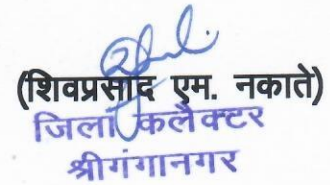 (शिवप्रसाद एम. नकाते)
जिला कलैक्टर
श्रीगंगानगर